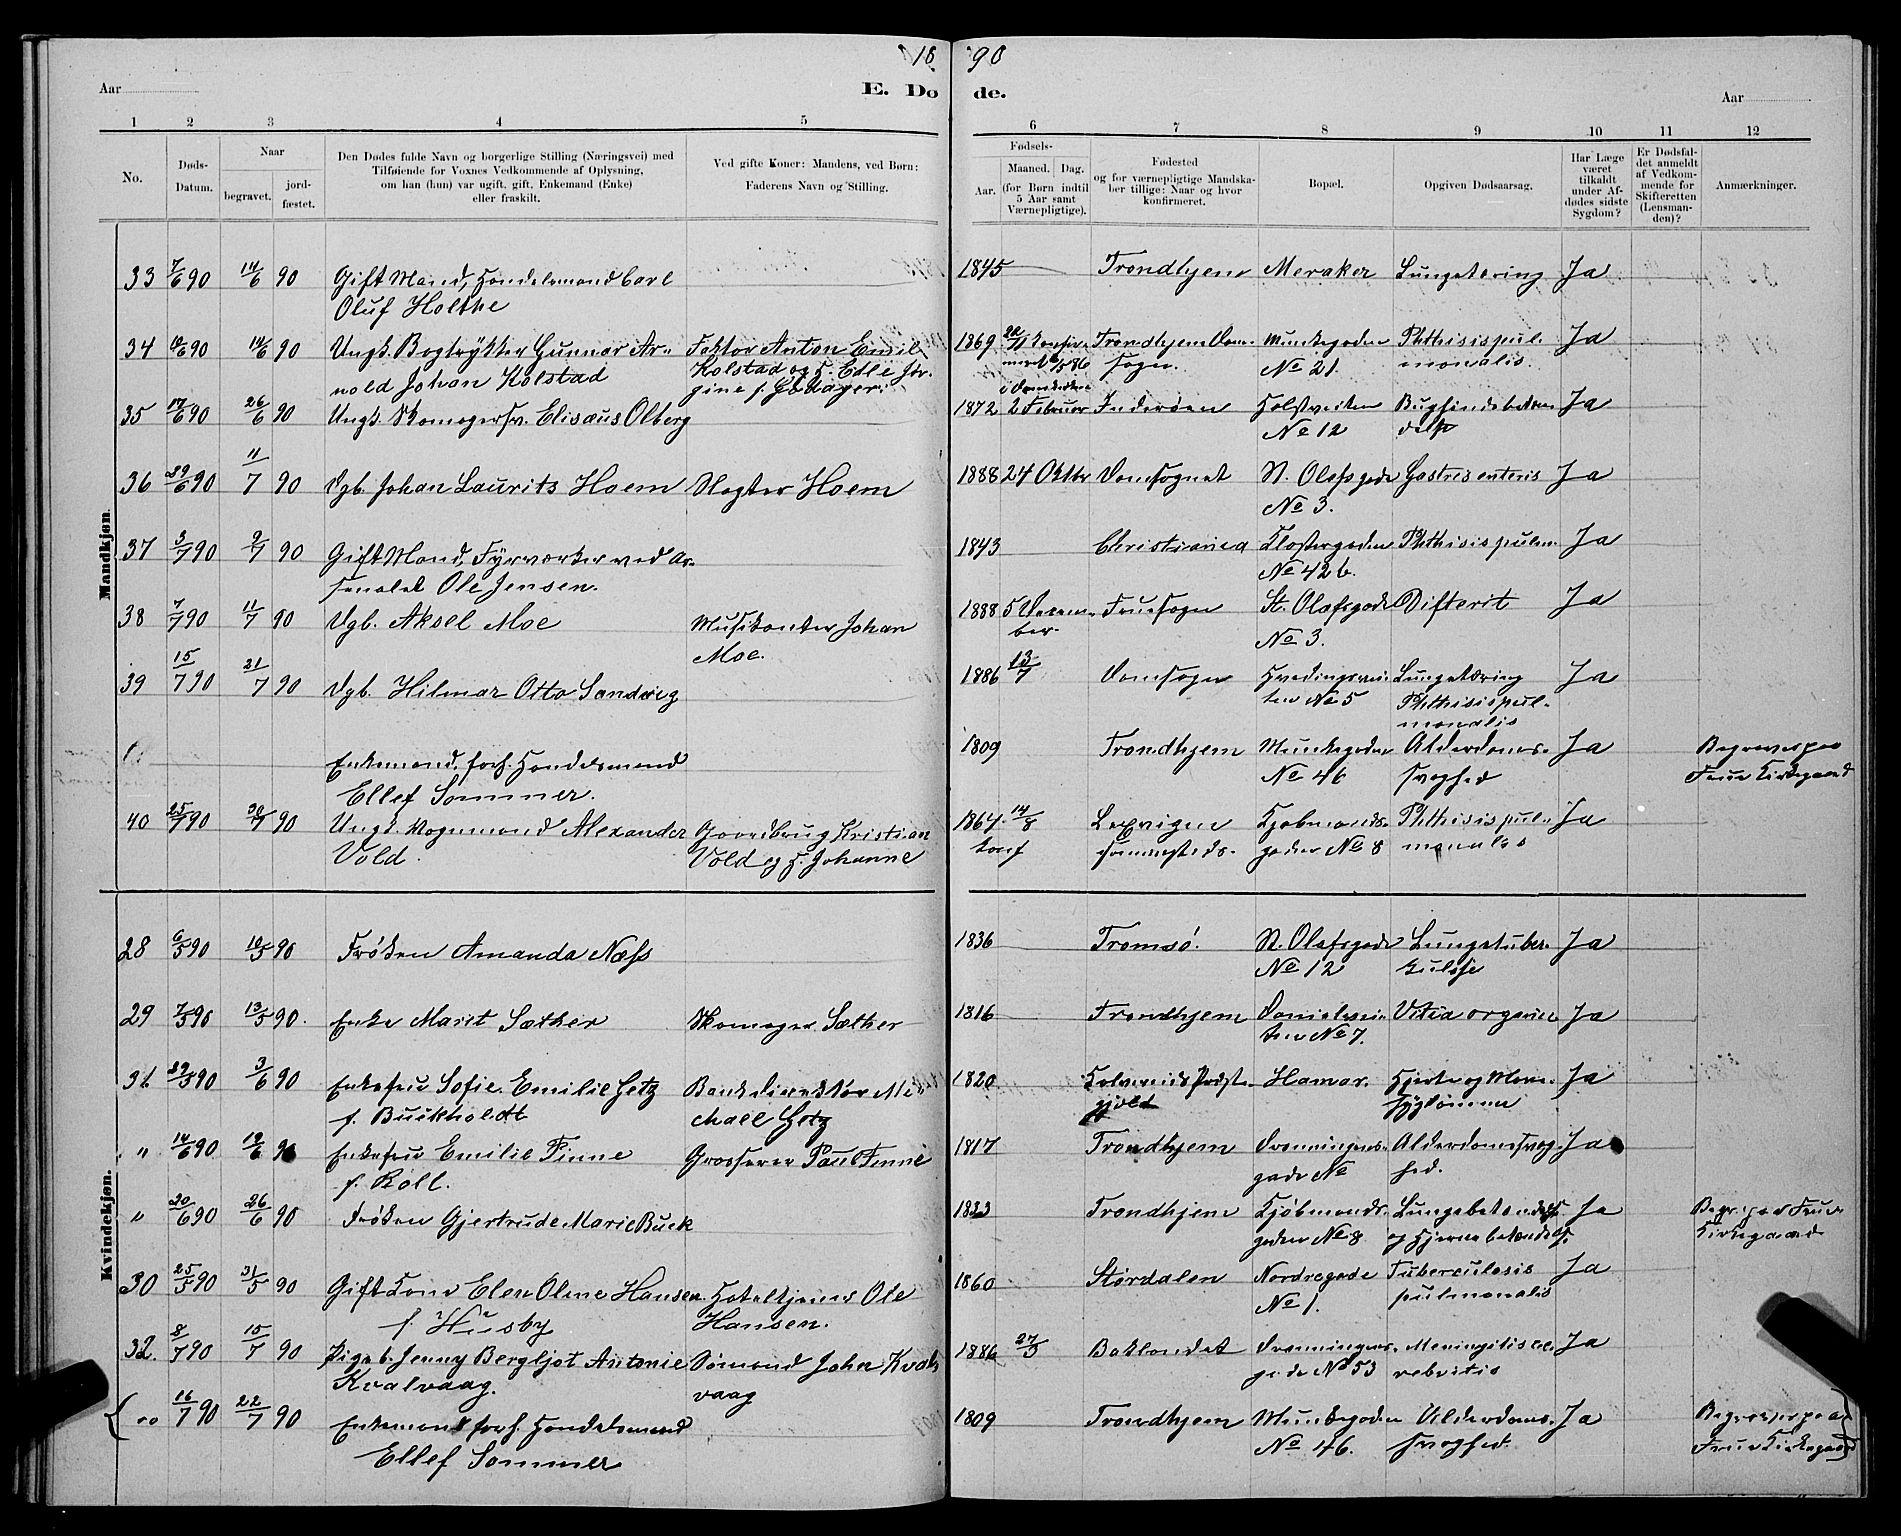 18 90
Aar
E. Dø de.
Aar
1 2 3 4 5 6 7 8 9 10 11 12
No.
Døds-
Datum.
Naar
begravet.
jord-
fæstet.
Den Dødes fulde Navn og borgerlige Stilling (Næringsvei) med
Tilføiende for Voxnes Vedkommende af Oplysning,
om han (hun) var ugift, gift, Enkemand (Enke)
eller fraskilt.
Ved gifte Koner: Mandens, ved Børn:
Faderens Navn og Stilling.
Fødsels-
Aar.
Maaned. Dag.
(for Børn indtil
5 Aar samt
Værnepligtige).
Fødested
og for værnepligtige Mandska-
ber tillige: Naar og hvor
konfirmeret.
Bopæl.
Opgiven Dødsaarsag.
Har Læge
været
tilkaldt
under Af-
dødes sidste
Sygdom?
Er Dødsfal-
det anmeldt
af Vedkom-
mende for
Skifteretten
(Lensman-
den)?
Anmærkninger.
Mandkjøn.
33 7/6 90 14/6 90 Gift Mand, Handelsmand Carl 1845 Trondhjem Meraker Lungetæring Ja
Oluf Holthe
34 10/6 90 14/6 90 Ungk. Bogtrykker Gunnar Ar- Faktor Anton Emil 1869 Trondhjem Dom- Munkegaden Phthisis pul- Ja
nold Johan Kolstad Kolstad og H. Edle Jør- sogn. No 21. monalis.
gine f.
35 17/6 90 26/6 90 Ungk. Skomagersv. Elisæus Olberg 1872 2 Februar Inderøen No 12 Ja
36 29/6 90 11/7 90 Dgb. Johan Laurits Hoem Slagter Hoem 1888 24 Oktbr Domsognet St. Olafsgade Gastris enteris Ja
No 3.
37 3/7 90 9/7 90 Gift Mand, Fyrværker ved Ar- 1843 Christiania Klostergaden Phthisis pulm. Ja
senalet Ole Jensen. No 42 b.
38 7/7 90 11/7 90 Dgb. Aksel Moe Musikanter Johan 1888 5 Decem- Fruesogn St. Olafsgade Difterit Ja
Moe. ber. No 3.
39 15/7 90 21/7 90 Dgb. Hilmar Otto Sandvig 1886 13/7 Domsogn Lungetæring Ja
No 5 Phthisis pul-
monalis
Enkemand, forh. Handelsmand 1809 Trondhjem Munkegaden Alderdoms- Ja Begraves paa
Ellef Sommer. No 46 svaghed Frue Kirkegaard
40 25/7 90 30/7 90 Ungk. Vognmand Alexander Gaardbrug Kristian 1864 14/8 Kjøbmands- Phthisis pul- Ja
Vold. Vold og H. Johanne konf gaden No 8 monales
Kvindekjøn.
28 6/5 90 10/5 90 Frøken Amanda Næss 1836 Tromsø. St. Olafsgade Lungetuber- Ja
No 12 kulose
29 7/5 90 13/5 90. Enke Marit Sæther Skomager Sæther 1816 Trondhjem Danielsvei- Vitia organic. Ja
ten No 7.
31 29/5 90 3/6 90 Enkefru Sofie Emilie Getz Bankdirektør Mi- 1820 Kolvereids Præste- Hamar. Hjerte og Mave- Ja
f. Buckholdt chael Getz gjeld sygdomme
" 14/6 90 19/6 90 Enkefru Emilie Finne Grosserer Paul Finne 1817 Trondhjem Dronningens- Alderdomssvag- Ja
f. Roll. gade No hed.
" 20/6 90 26/6 90 Frøken Gjertrude Marie Buck 1833 Trondhjem Kjøbmands- Lungebetændelse Ja Begr. paa Frue
gaden No 8 og Hjernebetændelse Kirkegaard
30 25/5 90 31/5 90 Gift Kone Elen Oline Hansen Hoteltjener Ole 1860 Størdalen Nordregade Tuberculosis Ja
f. Husby Hansen. No 1. pulmonalis
32. 8/7 90 15/7 90 Pigeb. Jenny Bergljot Antonie Sømand Johan Kval- 1886 27/3 Baklandet Dronningens- Meningitis ce- Ja
Kvalvaag. vaag gade No 53 rebritis
" 16/7 90 22/7 90 Enkemand forh. Handelsmand 1809 Trondhjem Munkegaden Alderdoms- Ja Begraves paa
Ellef Sommer No 46. svaghed. Frue Kirkegaard